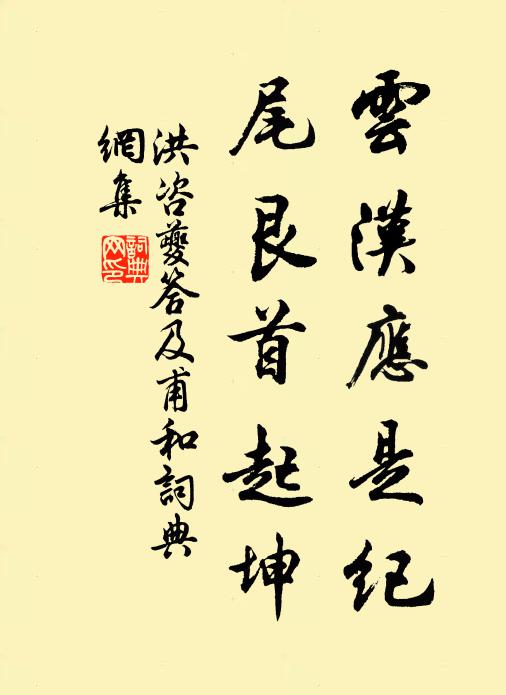 雲漢應是紀
尾艮首起坤
洪咨夔答及甫和詞典
網集
詞典网印